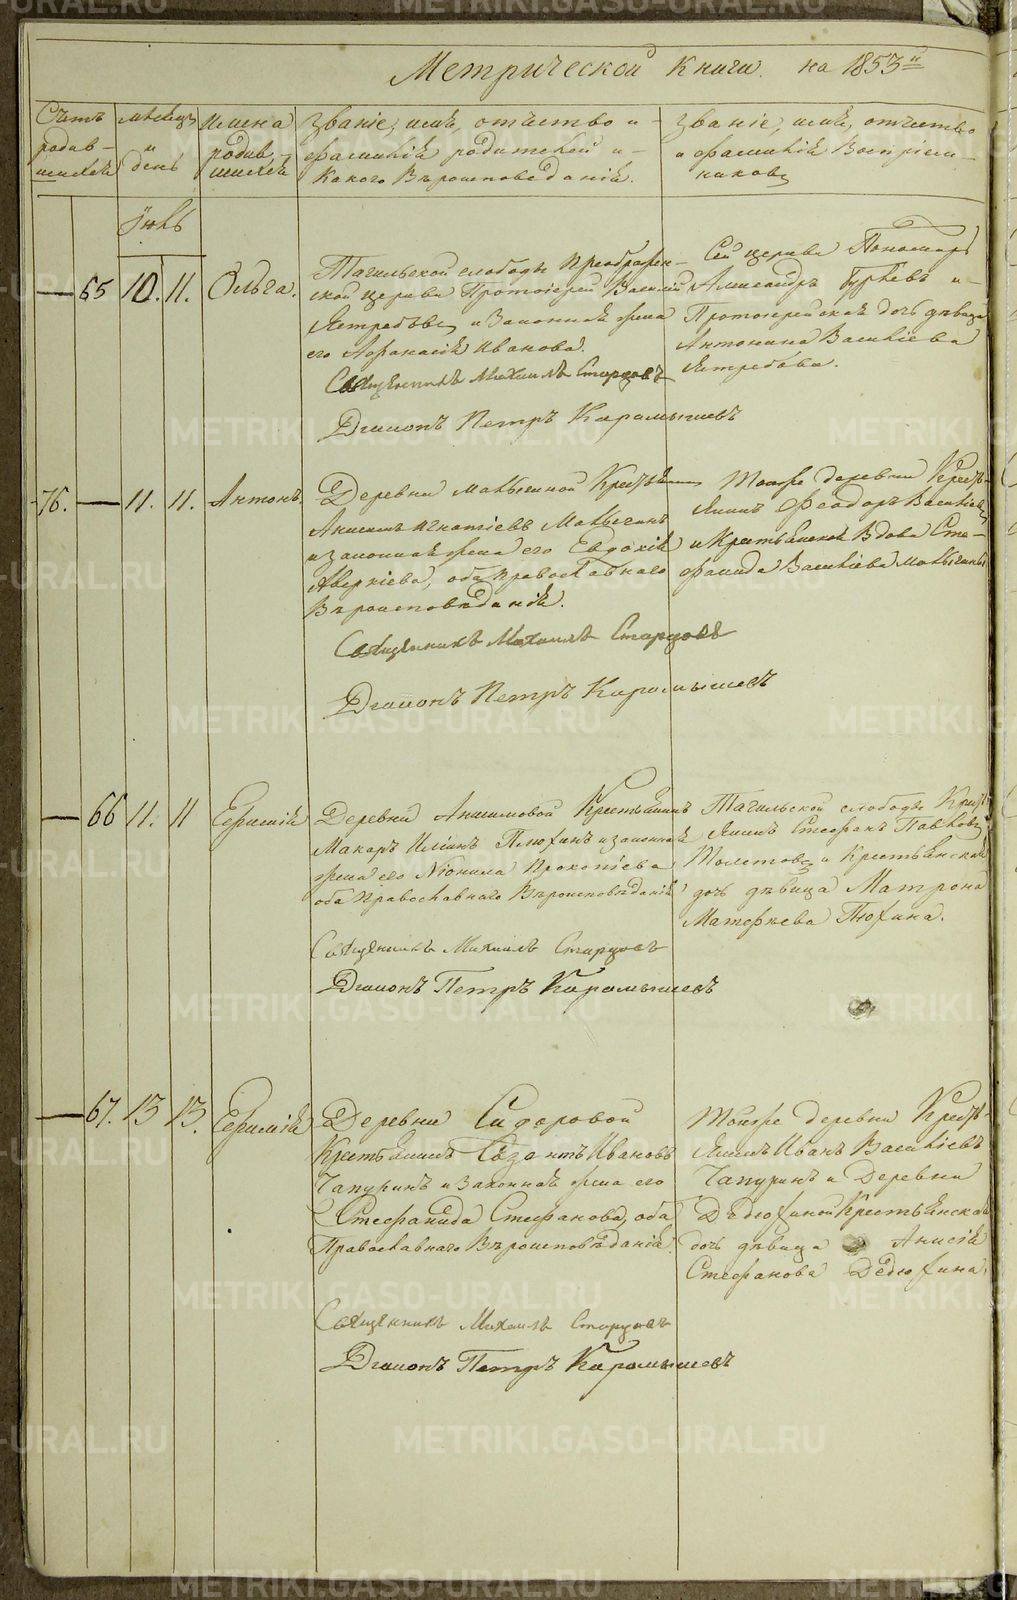 Метрической книги на 1853й
Счетъ родив-шихся
Мѣсяцъ и день
Имена родив-шихся
Званіе, имя, отчество и
фамилія родителей и
какого вѣроисповеданія.
Званіе, имя, отчество
и фамилія Воспріем-
никовъ
Іюль
65 10. 11. Ольга.
Тагильской слободы Преображен-
ской церкви Протоіерей Василій
Ястребовъ и Законная жена
его Афанасія Иванова.
Священникъ Михаилъ Старцовъ
Діаконъ Петръ Карамышевъ
Сей церкви Пономарь
Александръ Гурьевъ и
Протоіерейская дочь дѣвица
Антонина Василіева
Ястребова.
76. 11. 11. Антонъ.
Деревни Матыгиной Крестьянинъ
Анисимъ Игнатіевъ Матыгинъ
и законная жена его Евдокія
Аверкіева, оба православнаго
Вѣроисповѣданія.
Священникъ Михаилъ Старцовъ
Діаконъ Петръ Карамышевъ
Тояже деревни Кресть-
янинъ Феодоръ Василіевъ
и Крестьянская Вдова Сте-
фанида Василіева Матыгины
66 11. 11 Ефимій
Деревни Анисимовой Крестьянинъ
Макаръ Иліинъ Плюхинъ и законная
жена его Нионила Прокопіева
оба православнаго Вѣроисповѣданія
Священникъ Михаилъ Старцовъ
Діаконъ Петръ Карамышевъ
Тагильской слободы Кресть-
янинъ Стефанъ Павловъ
Толстовъ и Крестьянская
дочь дѣвица Матрона
Матфеева Тюхина.
67. 13 13. Ефимій
Деревни Сидоровой
Крестьянинъ Созонтъ Ивановъ
Чапуринъ и Законная жена его
Стефанида Стефанова, оба
Православнаго Вѣроисповѣданія.
Священникъ Михаилъ Старцовъ
Діаконъ Петръ Карамышевъ
Тояже деревни Кресть-
янинъ Иванъ Василіевъ
Чапуринъ и Деревни
Дѣдюхиной Крестьянская
дочь дѣвица Анисія
Стефанова Дѣдюхина.
METRIKI.GASO-URAL.RU